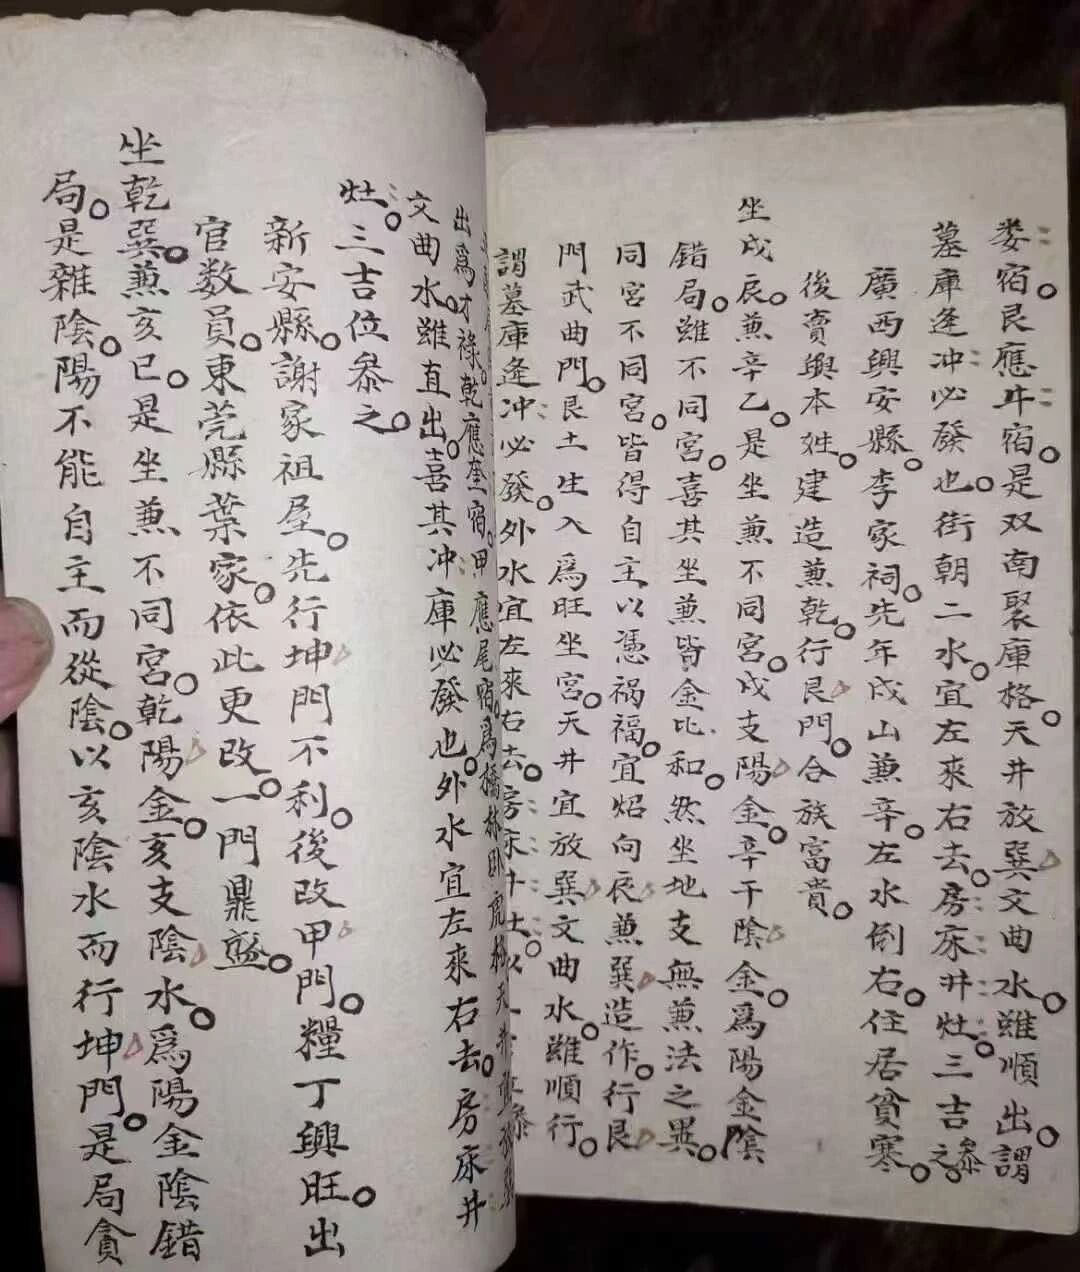 娄宿。艮應牛宿。是双南聚庫格。天井放巽文曲水。雖順出。謂
墓庫逢冲必發也。街朝二水。宜左來右去。房床井灶。三吉叅之。
廣西興安縣。李家祠。先年戌山兼辛。左水倒右。住居貧寒。
後賣與本姓。建造兼乾。行艮門。合族富貴。
坐戌辰。兼辛乙。是坐兼不同宮。戌支陽金。辛干陰金。爲陽金陰
錯局。雖不同宮。喜其坐兼皆金比和。然坐地支無兼法之異。
同宮不同宮。皆得自主以憑禍福。宜炤向辰兼巽造作。行艮
門武曲門。艮土生入爲旺坐宮。天井宜放巽文曲水。雖順行。
謂墓庫逢冲必發。外水宜左來右去。房床井
出爲才祿。乾應奎宿。甲應尾宿。爲橋林卧虎格天井
文曲水。雖直出。喜其冲庫必發也。外水宜左來右去。房床井
灶。三吉位叅之。
新安縣。謝家祖屋。先行坤門不利。後改甲門。糧丁興旺。出
官数員。東莞縣葉家。依此更改。一門鼎盛。
坐乾巽。兼亥巳。是坐兼不同宮。乾陽金。亥支陰水。爲陽金陰錯
局。是雜陰。陽不能自主而從陰。以亥陰水而行坤門。是局貪